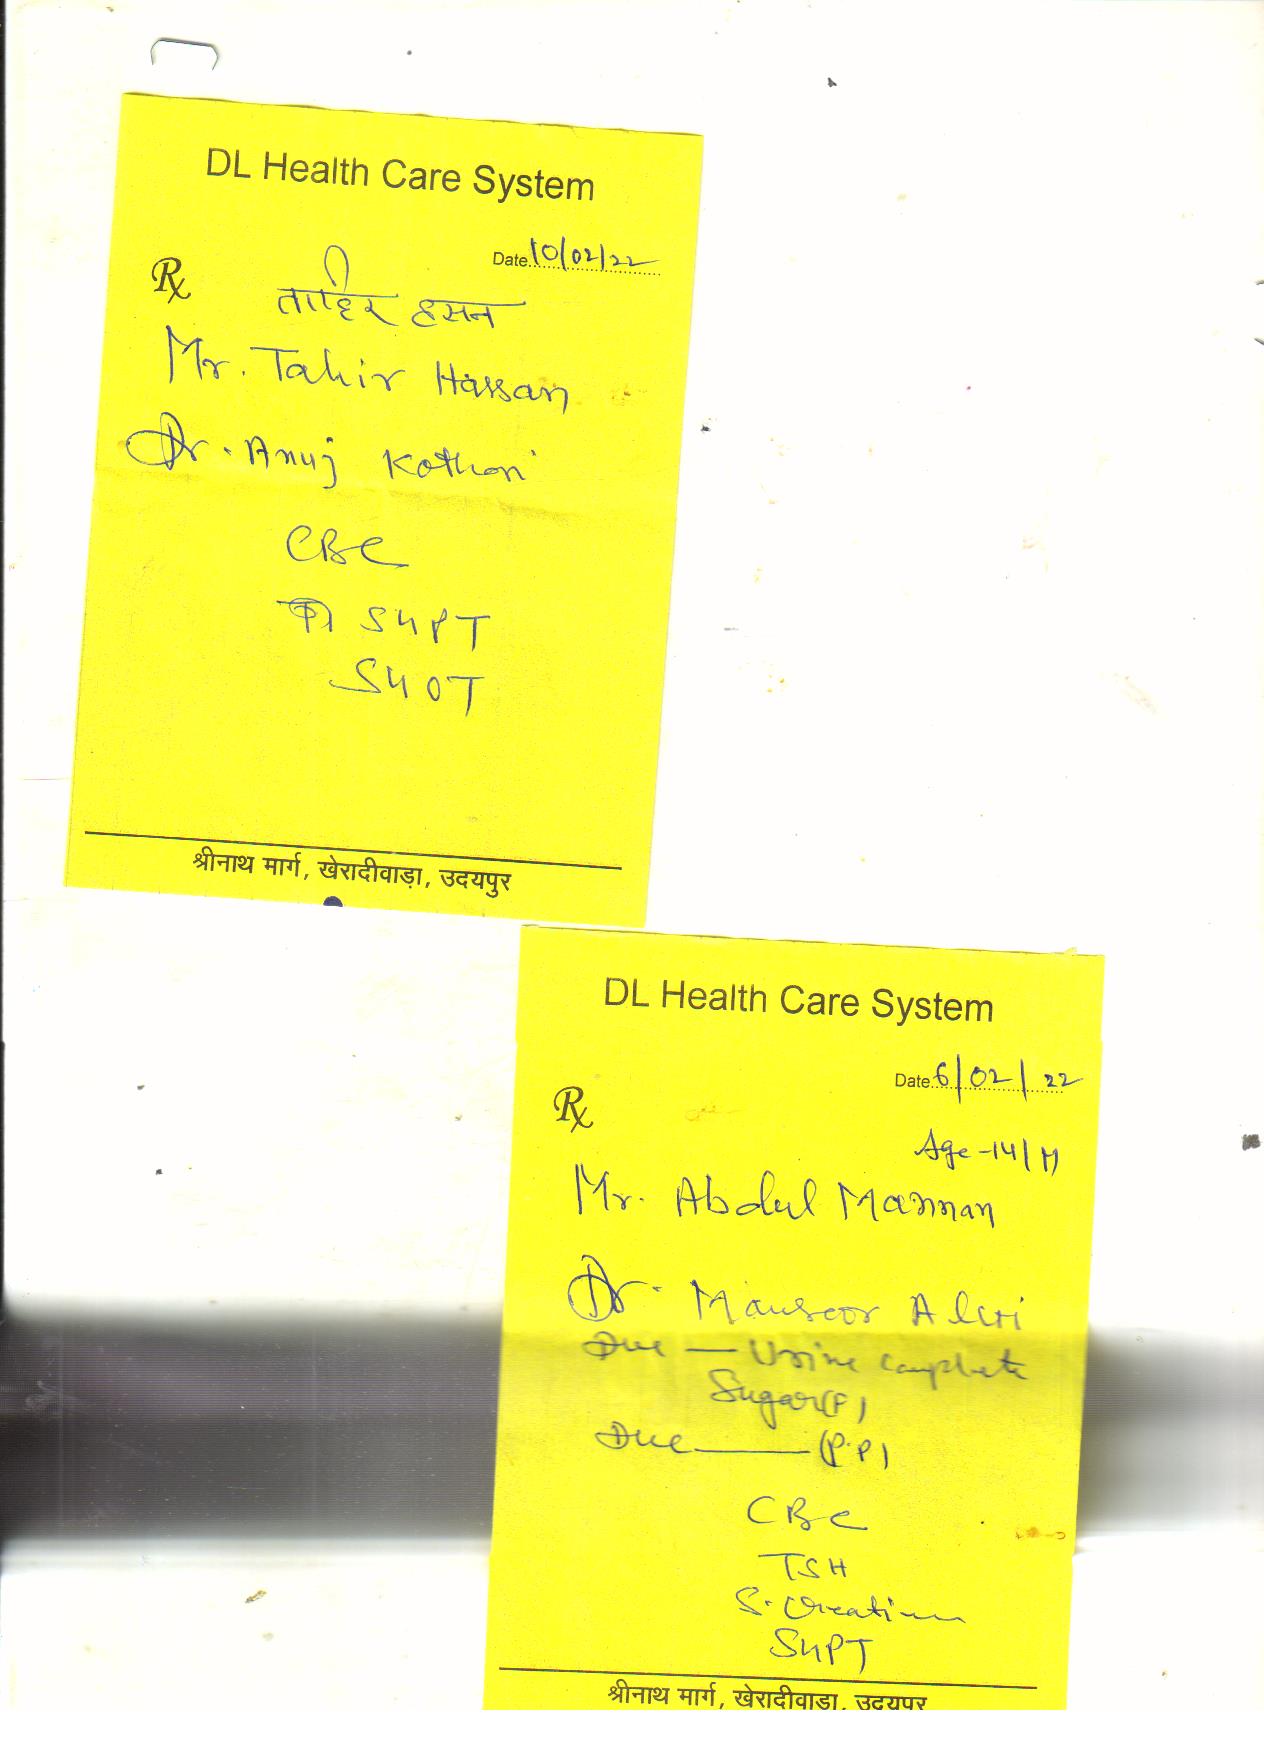 DL Health Care System
Date 10/02/22
Rx
ताहिर हसन
Mr. Tahir Hassan
Dr. Anuj Kothari
CBC
SGPT
SGOT
श्रीनाथ मार्ग, खेरादीवाड़ा, उदयपुर
DL Health Care System
Date 6/02/22
Rx
Age-14/M
Mr. Abdul Mannan
Dr. Mansoor Alvi
Due — Urine complete
Sugar(F)
Due — (P.P)
CBC
TSH
S. Creatinine
SGPT
श्रीनाथ मार्ग, खेरादीवाडा, उदयपुर